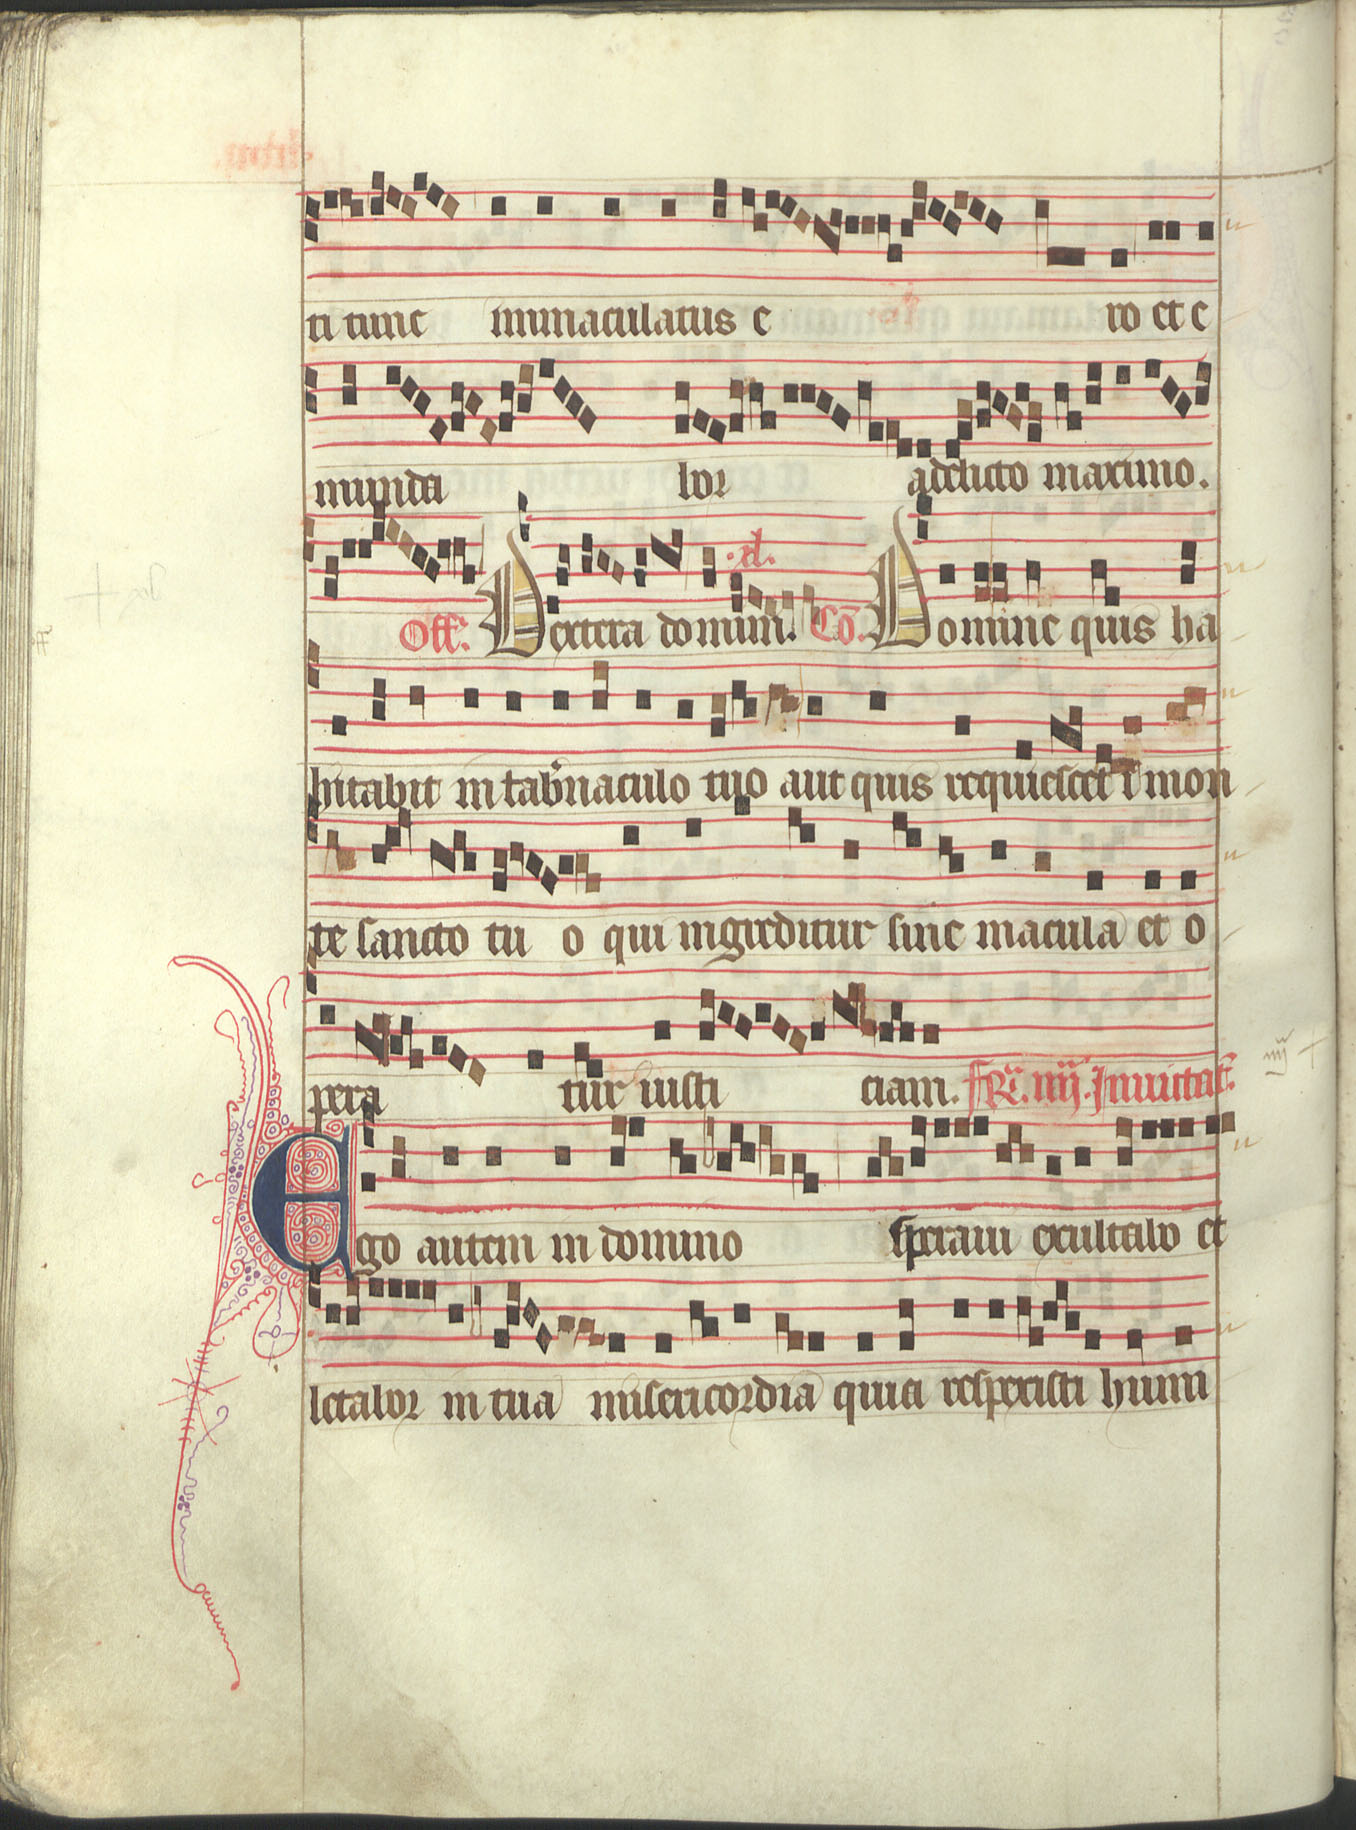 ti tunc inmaculatus e ro et e
munda bor a delicto maximo.
Off. Dextera domini. .xl. Co. Domine quis ha
bitabit in tab'naculo tuo aut quis requiescet ī mon
te sancto tu o qui ingreditur sine macula et o
pera tur iusti ciam. Fr. iiij. Inuitat.
Ego autem in domino speraui exultabo et
letabor in tua misericordia quia respexisti humi